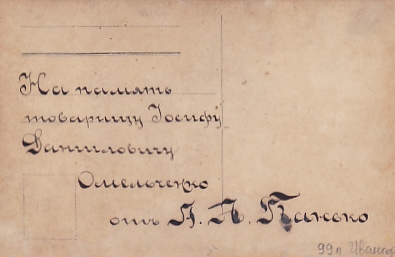 На память
товарищу Іосифу
Даниловичу
Омельченко
отъ А. А. Панько
99 л